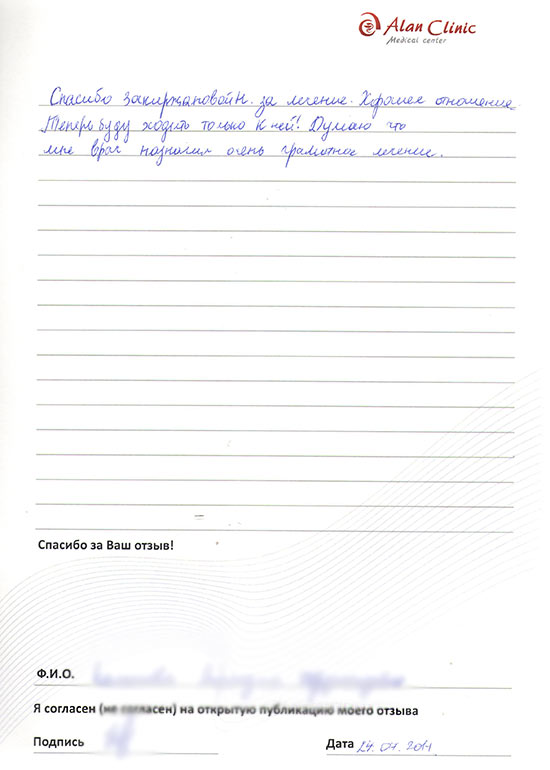 Alan Clinic
Medical center
Спасибо Закиржановой Н. за лечение. Хорошее отношение.
Теперь буду ходить только к ней! Думаю что
мне врач назначил очень грамотное лечение.
Спасибо за Ваш отзыв!
Ф.И.О.
Я согласен (не согласен) на открытую публикацию моего отзыва
Подпись
Дата 24.07.2014